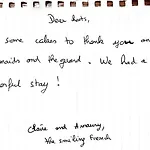 Dear hosts,
some cakes to thank you and
maids and the guard. We had a
stay !
Claire and Amaury,
the smiling French